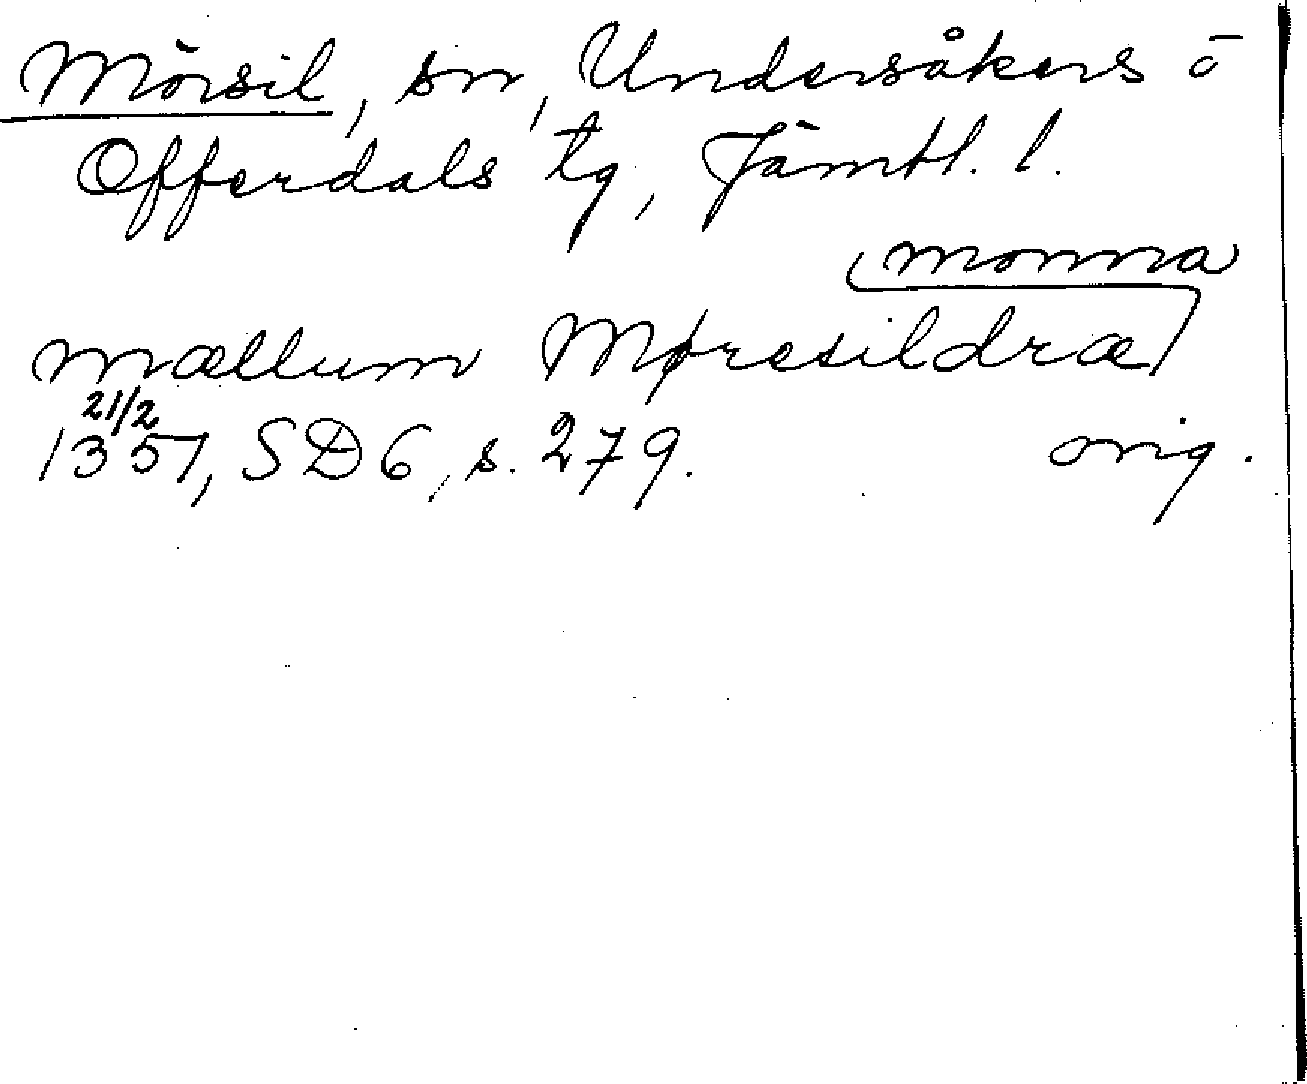 Mörsil, sn, Undersåkers o
Offerdals tg, Jämtl. l.
monna
mællum Møresildræ
21/2
1351, SD 6, s. 279. orig.